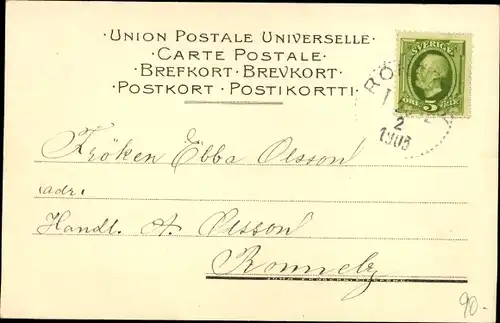 ·UNION POSTALE UNIVERSELLE·
·CARTE POSTALE·
·BREFKORT·BREVKORT·
·POSTKORT·POSTIKORTTI·
SVERIGE
ÖRE 5 ÖRE
2
1903
Fröken Ebba Olsson
adr:
Handl. A. Olsson
Ronneby
90.-